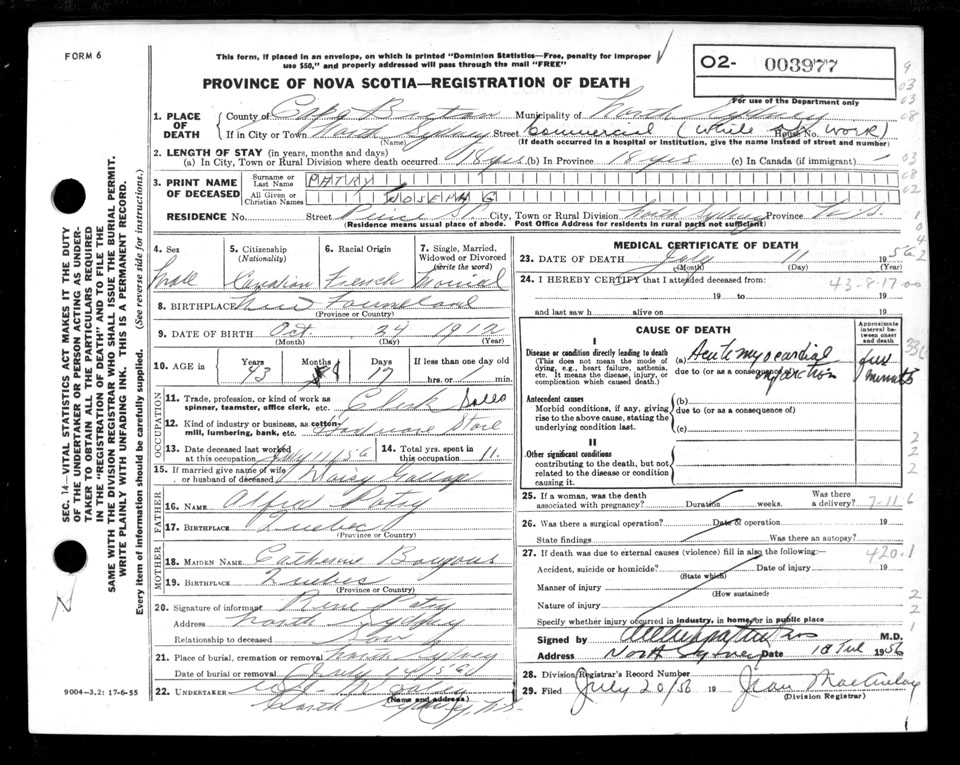 FORM 6
This form, if placed in an envelope, on which is printed "Dominion Statistics—Free, penalty for improper
use $50," and properly addressed will pass through the mail "FREE"
PROVINCE OF NOVA SCOTIA—REGISTRATION OF DEATH
O2- 003977
For use of the Department only
1. PLACE OF DEATH
County of Cape Breton Municipality of North Sydney
If in City or Town North Sydney Street Commercial (while at work) House No.
(Name) (If death occurred in a hospital or institution, give the name instead of street and number)
2. LENGTH OF STAY (in years, months and days)
(a) In City, Town or Rural Division where death occurred 18 yrs (b) In Province 18 yrs (c) In Canada (if immigrant) —
3. PRINT NAME OF DECEASED
Surname or Last Name PATRY
All Given or Christian Names JOSEPH G
RESIDENCE No. Street St. City, Town or Rural Division North Sydney Province N.S.
(Residence means usual place of abode. Post Office Address for residents in rural parts not sufficient)
4. Sex Male
5. Citizenship (Nationality) Canadian
6. Racial Origin French
7. Single, Married, Widowed or Divorced (write the word) Married
8. BIRTHPLACE New Foundland
(Province or Country)
9. DATE OF BIRTH Oct. 24 1912
(Month) (Day) (Year)
10. AGE in Years 43 Months 8 Days 17 If less than one day old hrs. or min.
OCCUPATION
11. Trade, profession, or kind of work as spinner, teamster, office clerk, etc. Clerk Sales
12. Kind of industry or business, as cotton-mill, lumbering, bank, etc. Hardware Store
13. Date deceased last worked at this occupation July 11/56
14. Total yrs. spent in this occupation 11.
15. If married give name of wife or husband of deceased Daisy
FATHER
16. NAME Alfred Patry
17. BIRTHPLACE Quebec
(Province or Country)
MOTHER
18. MAIDEN NAME Catherine
19. BIRTHPLACE Quebec
(Province or Country)
20. Signature of informant Rene Patry
Address North Sydney
Relationship to deceased Son
21. Place of burial, cremation or removal North Sydney
Date of burial or removal July 14/56
22. UNDERTAKER
(Name and address)
North Sydney, N.S.
MEDICAL CERTIFICATE OF DEATH
23. DATE OF DEATH July 11 1956
(Month) (Day) (Year)
24. I HEREBY CERTIFY that I attended deceased from:
19 to 19
and last saw h alive on 19
43-8-17-00
CAUSE OF DEATH
Approximate interval between onset and death
I
Disease or condition directly leading to death
(This does not mean the mode of dying, e.g., heart failure, asthenia, etc. It means the disease, injury, or complication which caused death.)
(a) Acute myocardial infarction
due to (or as a consequence of)
few minutes
Antecedent causes
Morbid conditions, if any, giving rise to the above cause, stating the underlying condition last.
(b)
due to (or as a consequence of)
(c)
II
Other significant conditions
contributing to the death, but not related to the disease or condition causing it.
25. If a woman, was the death associated with pregnancy? Duration weeks. Was there a delivery?
7-11-6
26. Was there a surgical operation? Date of operation 19
State findings Was there an autopsy?
27. If death was due to external causes (violence) fill in also the following:
420.1
Accident, suicide or homicide? Date of injury 19
(State which)
Manner of injury
(How sustained)
Nature of injury
Specify whether injury occurred in industry, in home, or in public place
Signed by M.D.
Address North Sydney Date 18 Jul 1956
28. Division Registrar's Record Number
29. Filed July 20/56 19 Jean
(Division Registrar)
SEC. 14—VITAL STATISTICS ACT MAKES IT THE DUTY
OF THE UNDERTAKER OR PERSON ACTING AS UNDER-
TAKER TO OBTAIN ALL THE PARTICULARS REQUIRED
IN THE "REGISTRATION OF DEATH" AND TO FILE THE
SAME WITH THE DIVISION REGISTRAR WHO SHALL ISSUE THE BURIAL PERMIT.
WRITE PLAINLY WITH UNFADING INK. THIS IS A PERMANENT RECORD.
Every item of information should be carefully supplied. (See reverse side for instructions.)
9004-3.2: 17-6-55